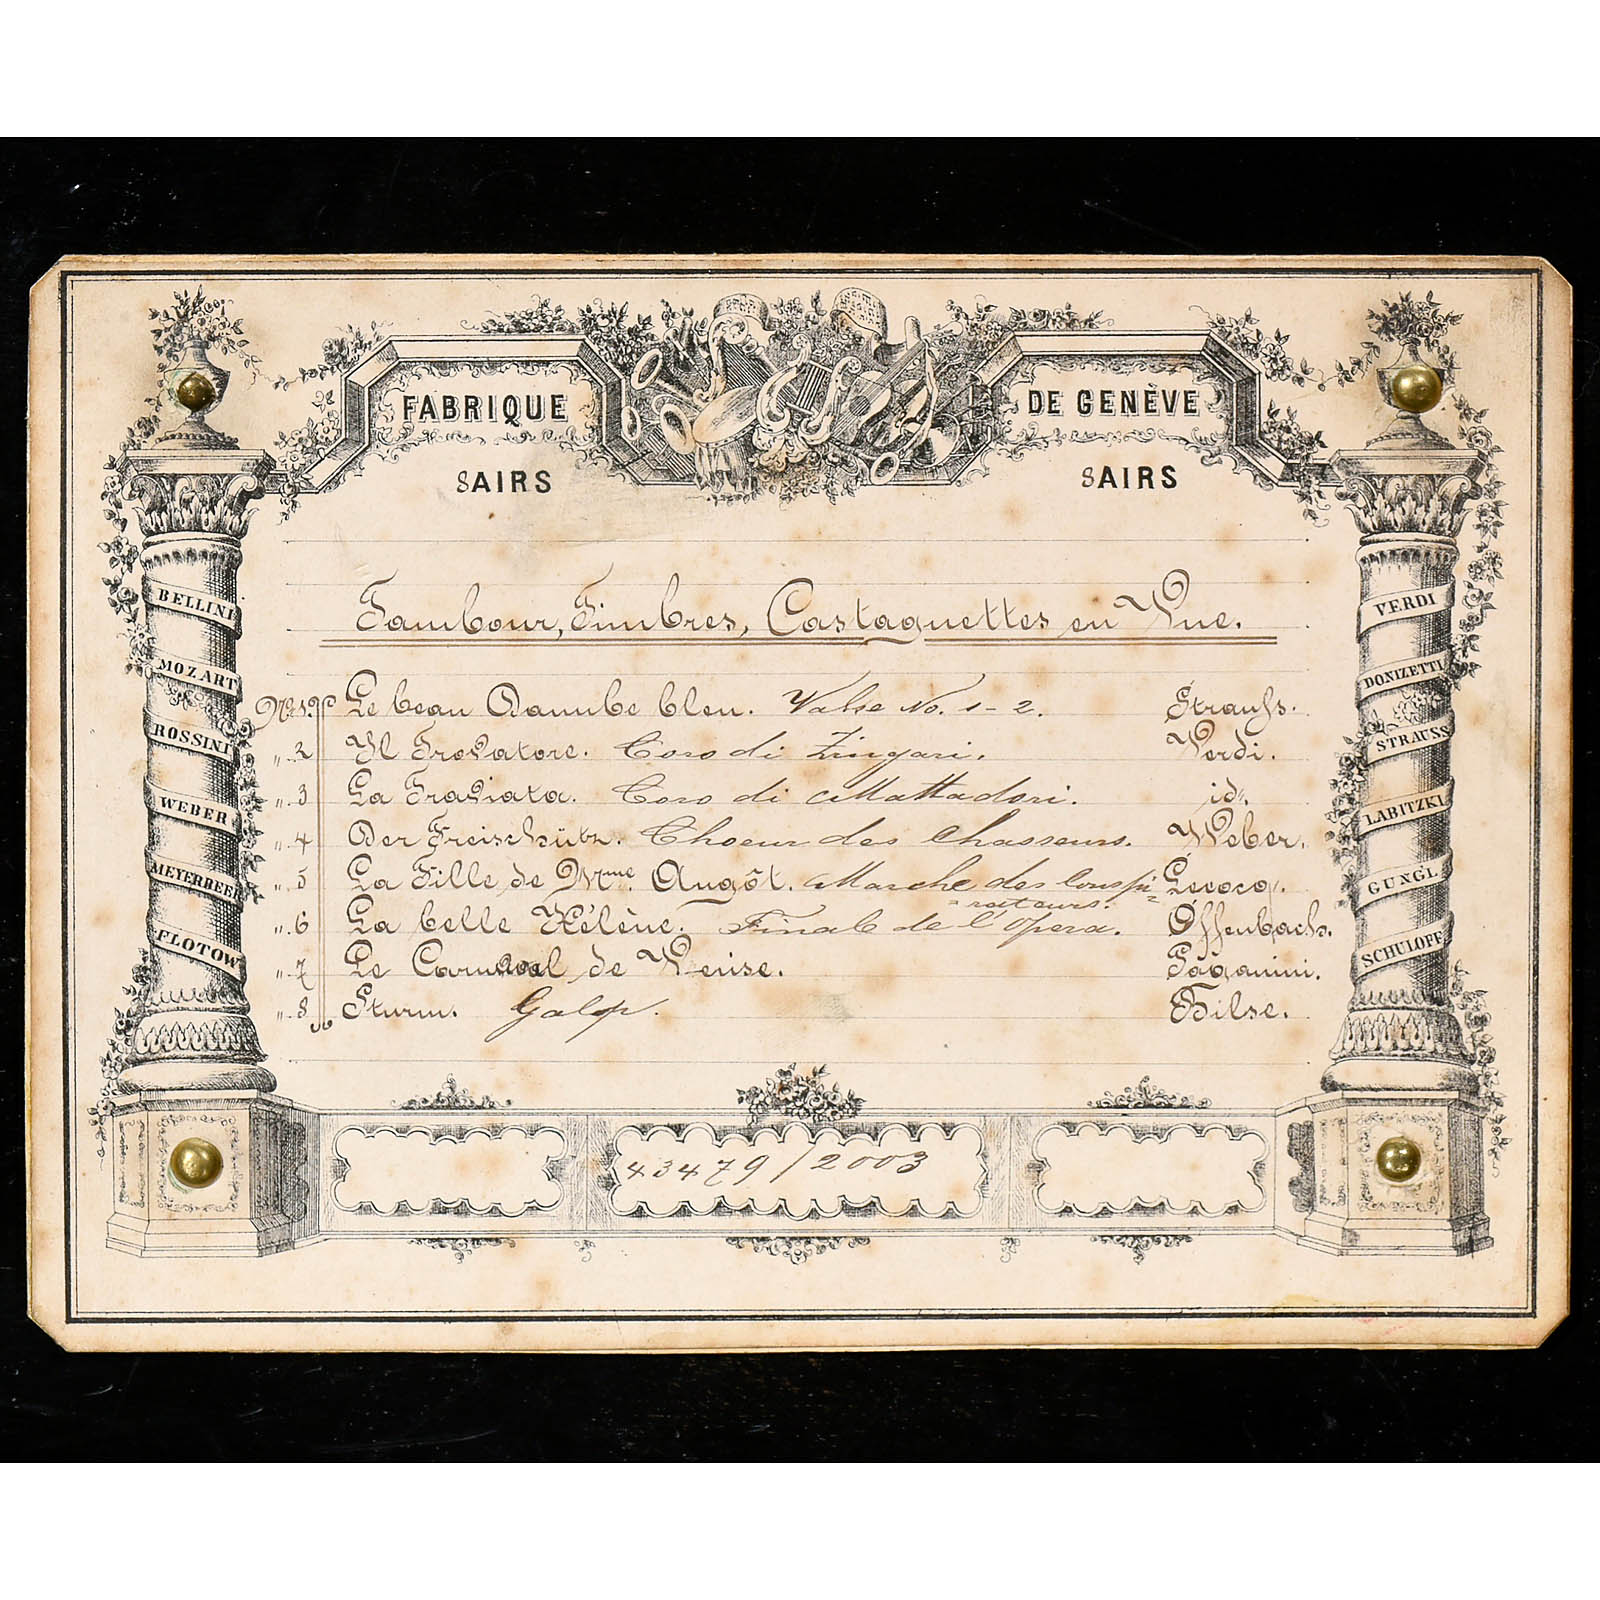 FABRIQUE DE GENÈVE
8 AIRS 8 AIRS
Tambour, Timbres, Castagnettes en Vue.
No. 1. Le beau Danube bleu. Valse No. 1-2. Strauss.
" 2 Il Trovatore. Coro di Zingari. Verdi.
" 3 La Traviata. Coro di Mattadori. id".
" 4 Der Freischütz. Choeur des Chasseurs. Weber.
" 5 La Fille de Mme Augôt. Marche des Conspi= Lecocq.
=rateurs.
" 6 La belle Hélène. Finale de l'Opera. Offenbach.
" 7 Le Carnaval de Venise. Paganini.
" 8 Sturm. Galop. Bilse.
43479/2003
BELLINI
MOZART
ROSSINI
WEBER
MEYERBEER
FLOTOW
VERDI
DONIZETTI
STRAUSS
LABITZKI
GUNGL
SCHULOFF